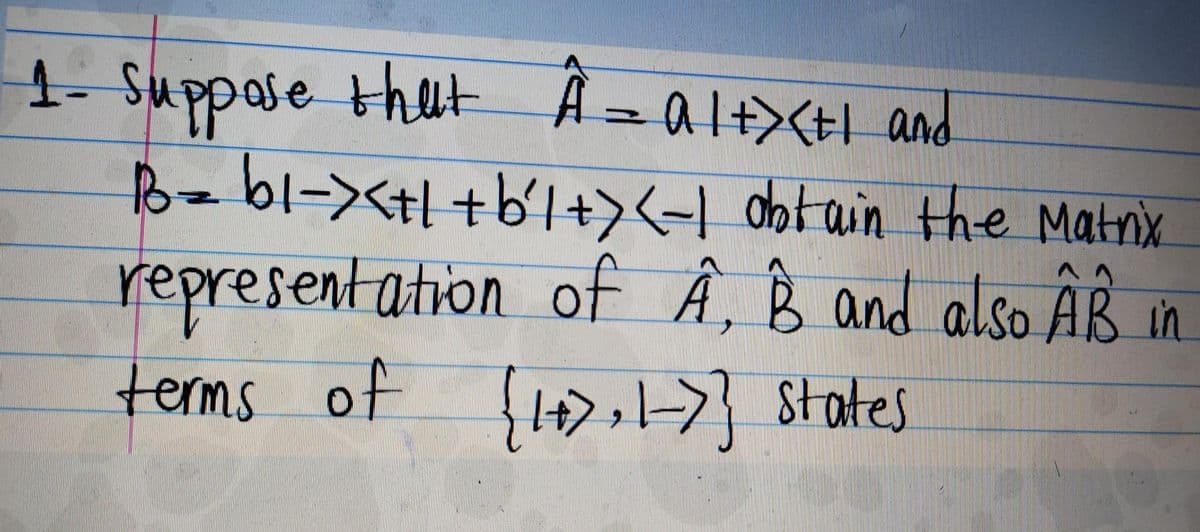 1- Suppose that Â = a|+><+| and
B = b|-><+| + b'|+><-| obtain the Matrix
representation of Â, B̂ and also ÂB̂ in
terms of {|+>, |->} states